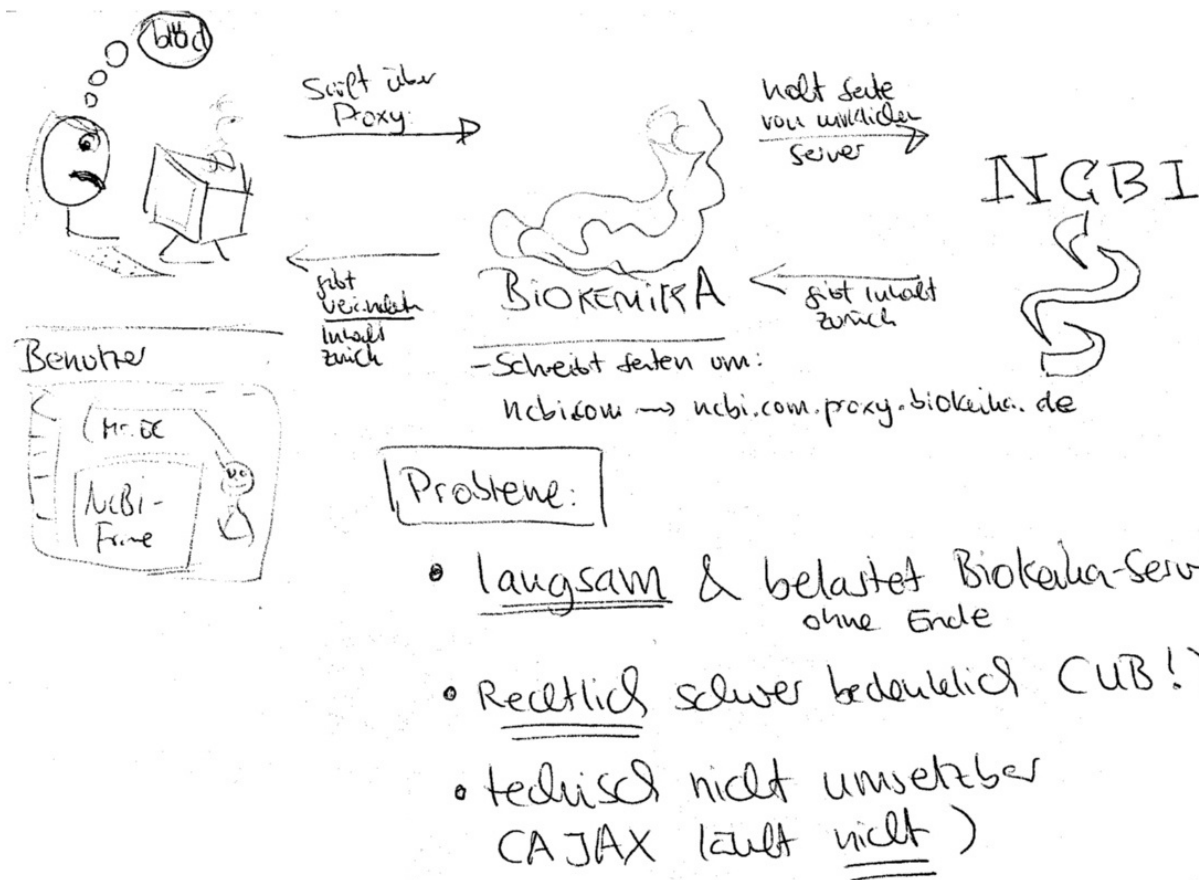 blöd
Surft über
Proxy:
holt Seite
von wirklichen
Server
NCBI
gibt
verändert
Inhalt
zurück
BIOKEMIKA
gibt Inhalt
zurück
Benutzer
- Schreibt seiten um:
ncbi.com → ncbi.com.proxy.biokemika.de
NCBI-
Frame
Probleme:
• langsam & belastet Biokemika-Serv
ohne Ende
• Rechtlich schwer bedenklich (UB!)
• technisch nicht umsetzbar
(AJAX läuft nicht)